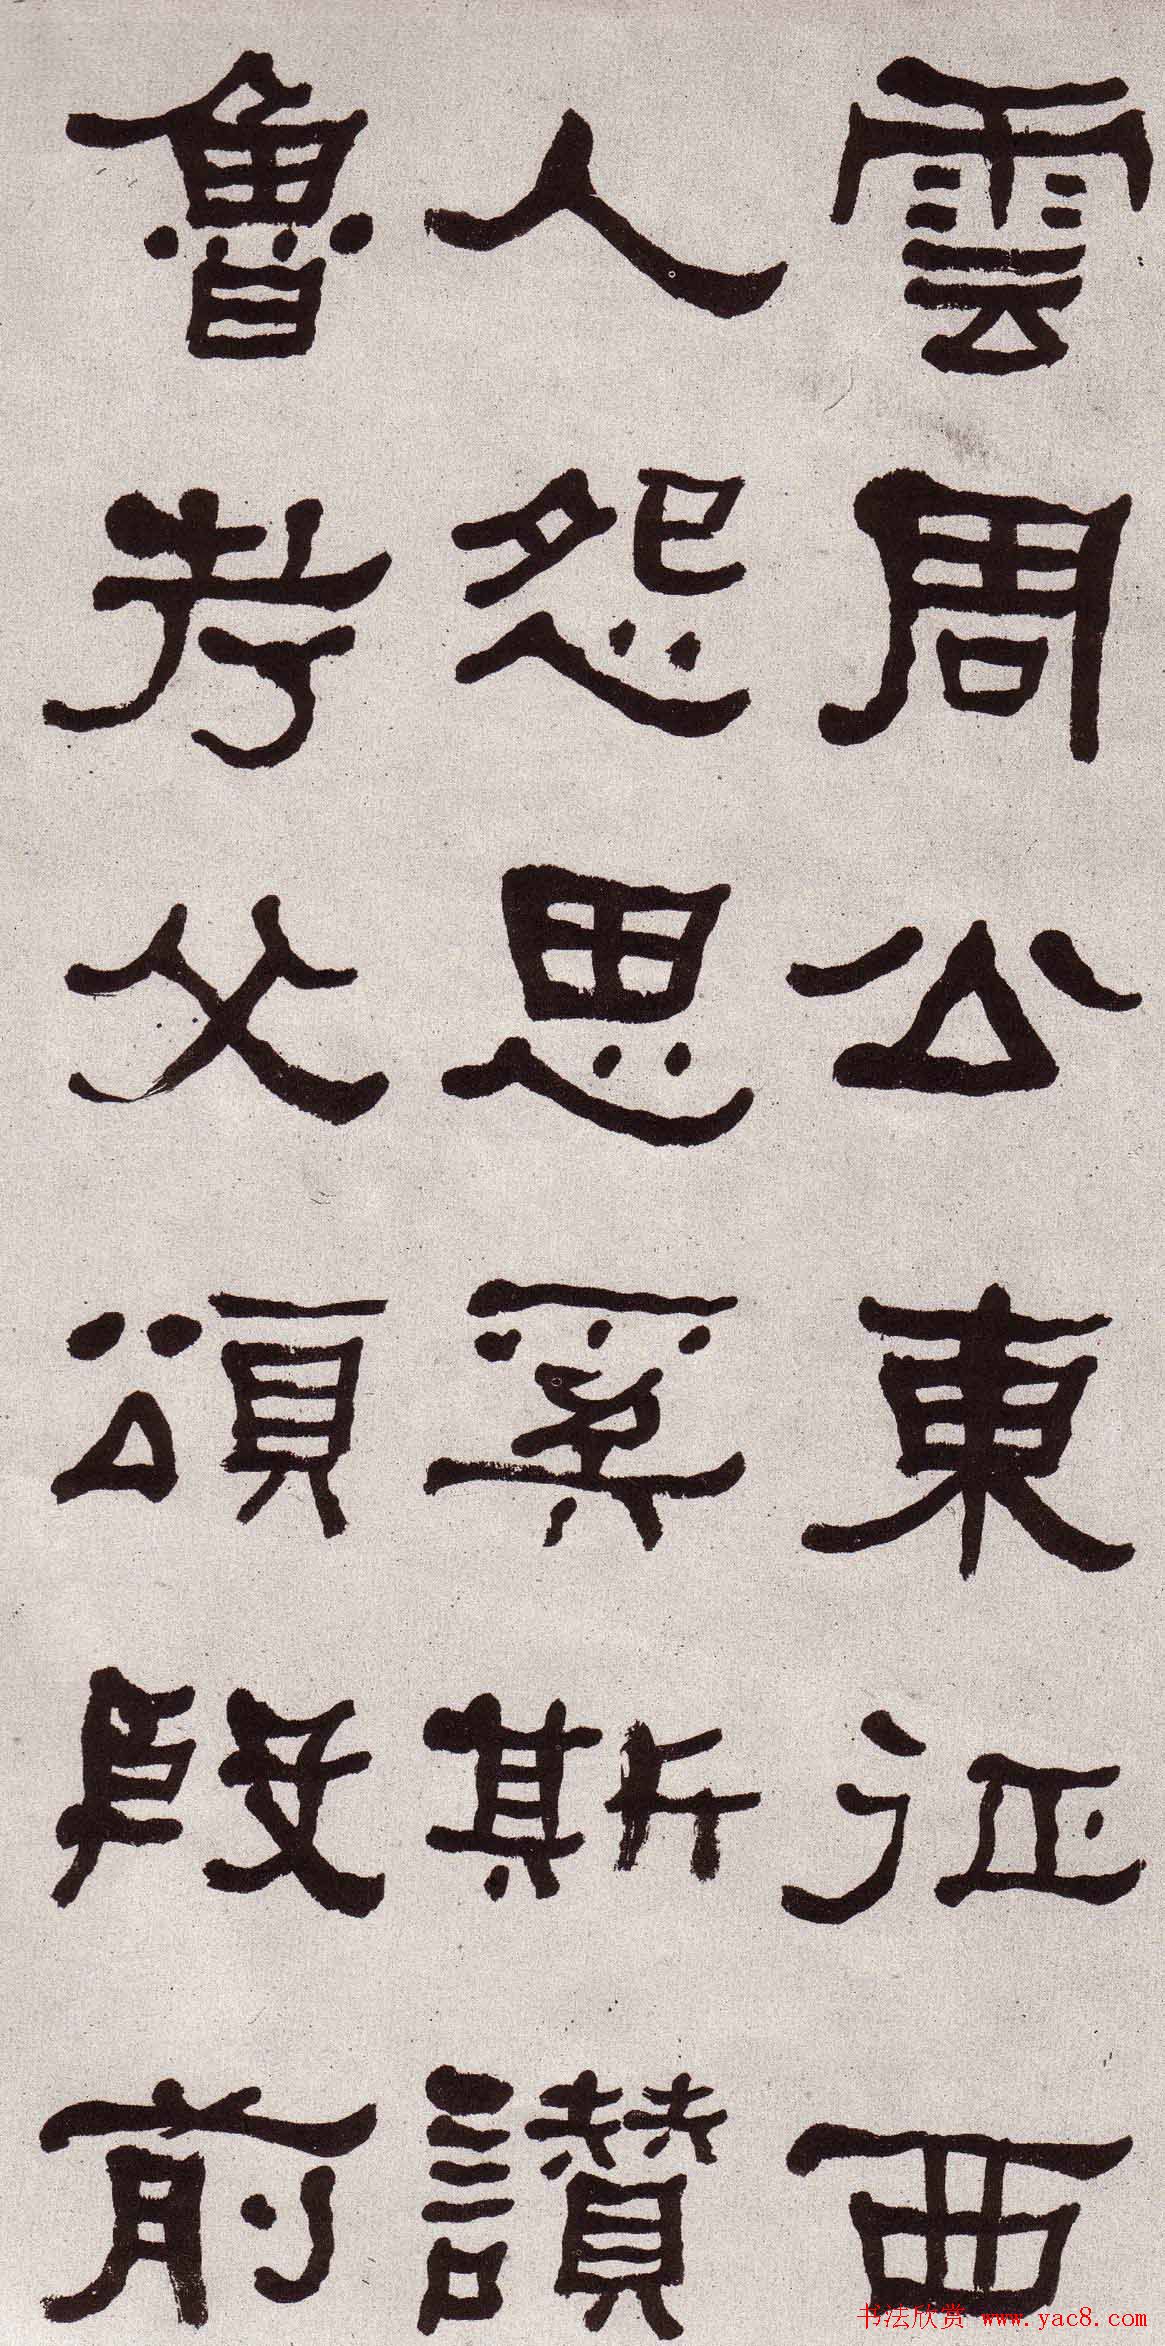 雲周公東征西
人怨思奚斯讚
魯考父頌殷前
书法欣赏 www.yac8.com